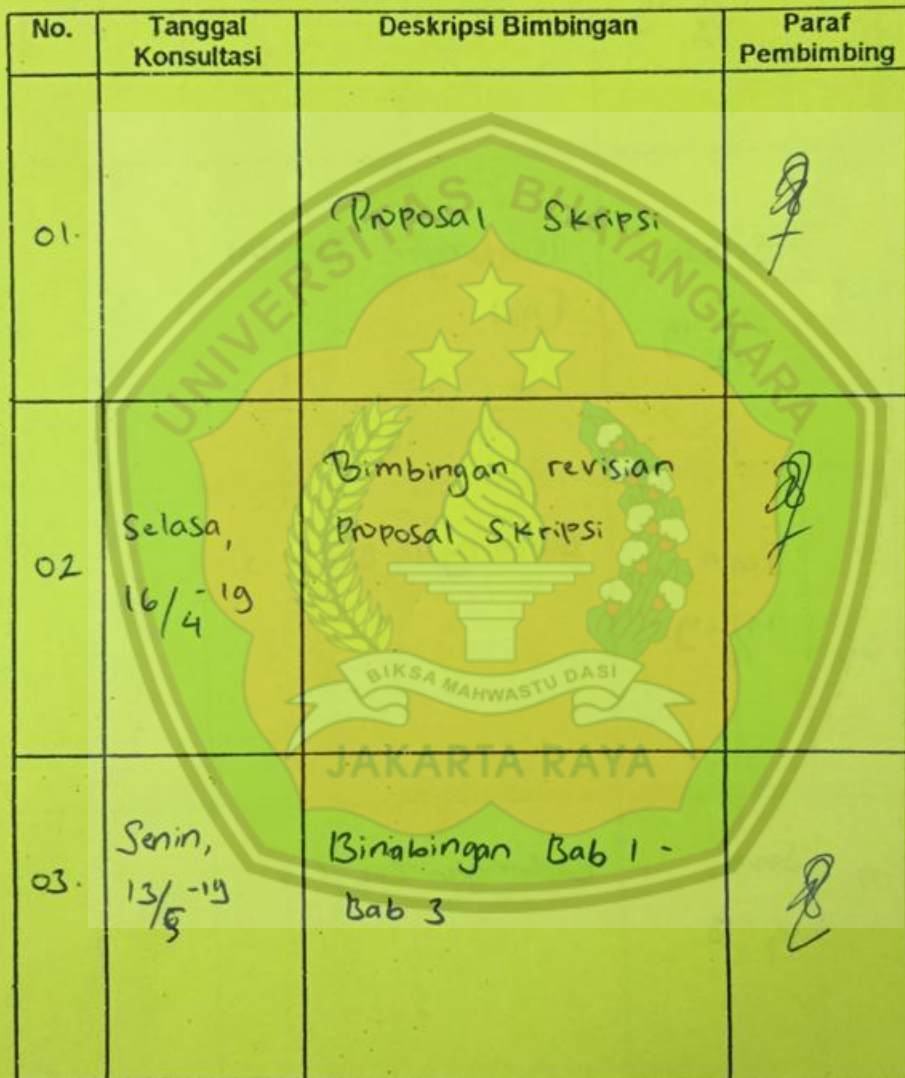 No.
Tanggal
Konsultasi
Deskripsi Bimbingan
Paraf
Pembimbing
01.
Proposal Skripsi
02
Selasa,
16/4-19
Bimbingan revisian
Proposal Skripsi
03.
Senin,
13/5-19
Bimbingan Bab 1 -
Bab 3
UNIVERSITAS BHAYANGKARA
BIKSA MAHWASTU DASI
JAKARTA RAYA